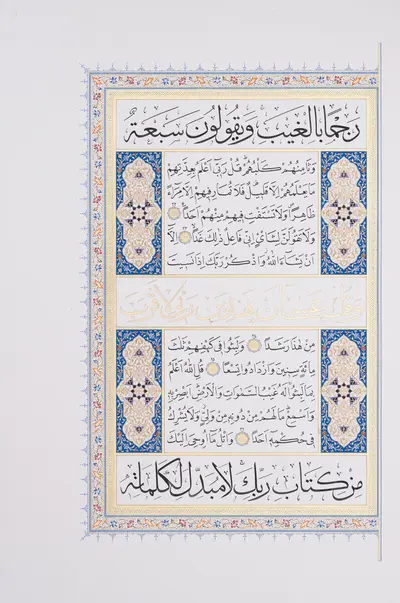 رَجْمًا بِالْغَيْبِ وَيَقُولُونَ سَبْعَةٌ
وَثَامِنُهُمْ كَلْبُهُمْ قُلْ رَبِّي أَعْلَمُ بِعِدَّتِهِمْ
مَا يَعْلَمُهُمْ إِلَّا قَلِيلٌ فَلَا تُمَارِ فِيهِمْ إِلَّا مِرَاءً
ظَاهِرًا وَلَا تَسْتَفْتِ فِيهِمْ مِنْهُمْ أَحَدًا
وَلَا تَقُولَنَّ لِشَايْءٍ إِنِّي فَاعِلٌ ذَلِكَ غَدًا إِلَّا
أَنْ يَشَاءَ اللَّهُ وَاذْكُرْ رَبَّكَ إِذَا نَسِيتَ
وَقُلْ عَسَى أَنْ يَهْدِيَنِ رَبِّي لِأَقْرَبَ
مِنْ هَذَا رَشَدًا وَلَبِثُوا فِي كَهْفِهِمْ ثَلَاثَ
مِائَةٍ سِنِينَ وَازْدَادُوا تِسْعًا قُلِ اللَّهُ أَعْلَمُ
بِمَا لَبِثُوا لَهُ غَيْبُ السَّمَوَاتِ وَالْأَرْضِ أَبْصِرْ بِهِ
وَأَسْمِعْ مَا لَهُمْ مِنْ دُونِهِ مِنْ وَلِيٍّ وَلَا يُشْرِكُ
فِي حُكْمِهِ أَحَدًا وَاتْلُ مَا أُوحِيَ إِلَيْكَ
مِنْ كِتَابِ رَبِّكَ لَا مُبَدِّلَ لِكَلِمَاتِهِ